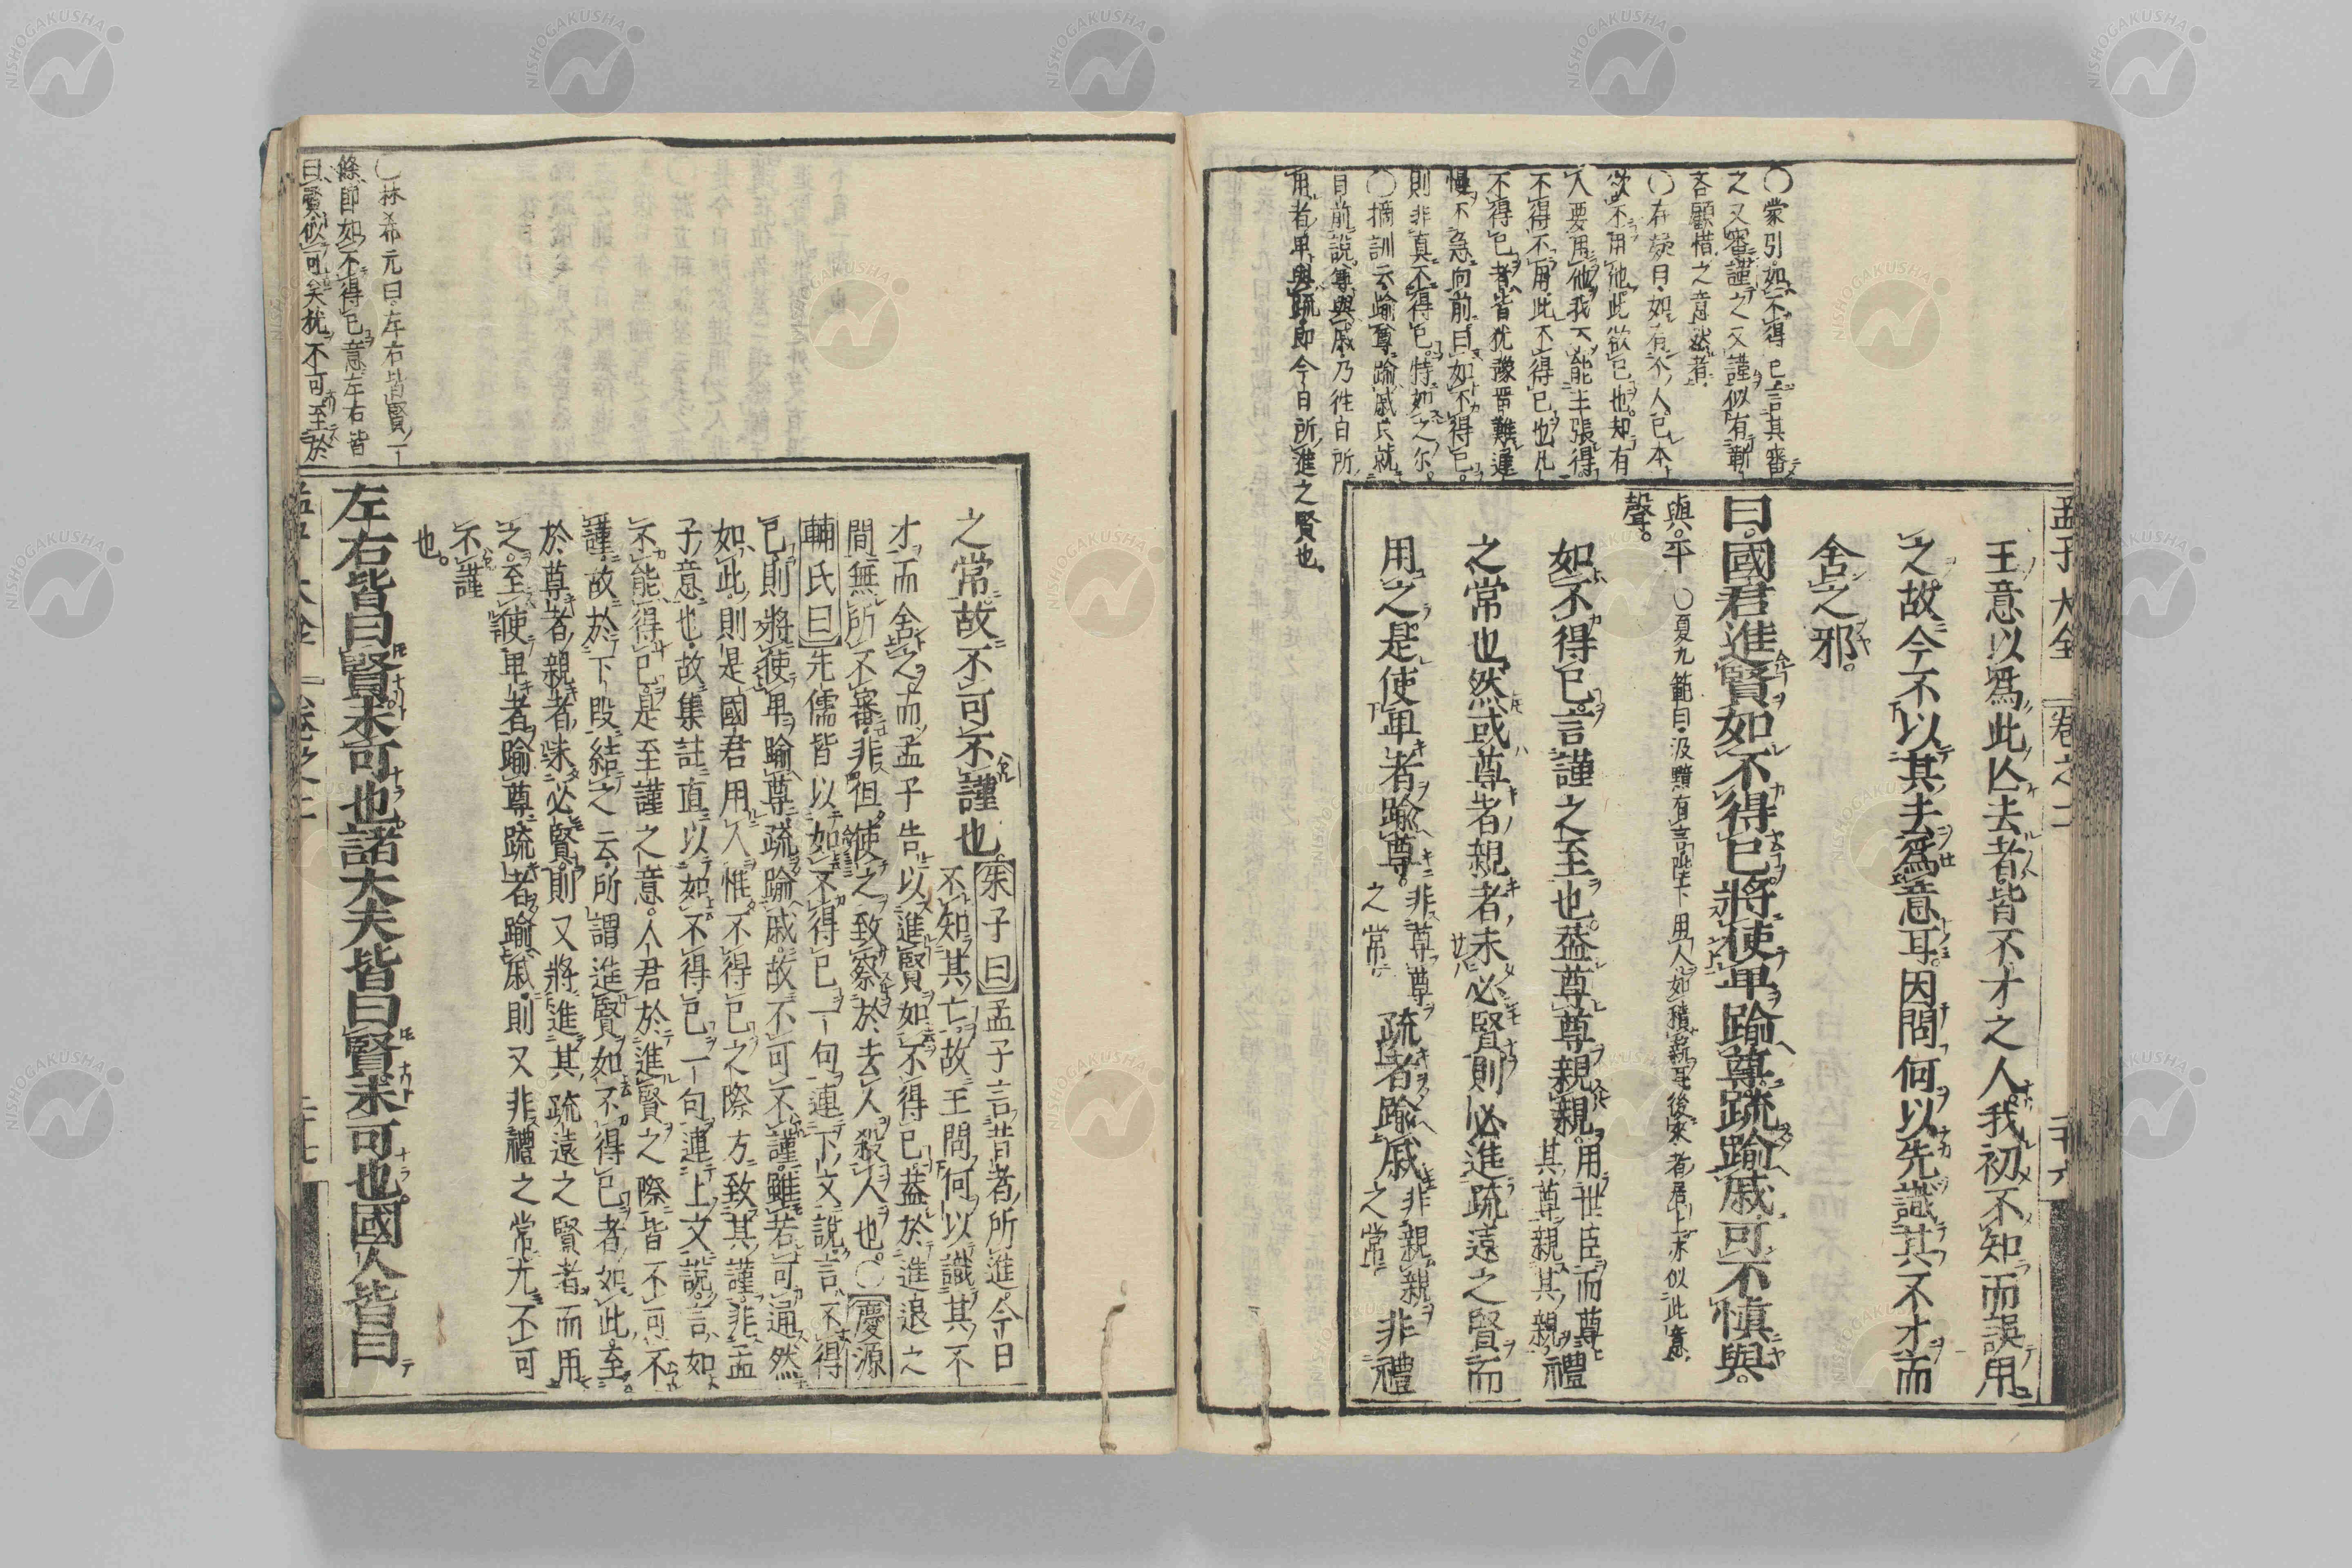 孟子大全 卷之二 二十六
〇蒙引。如不得已言其審
之又審謹之又謹似有靳
吝顧惜之意然者。
〇存疑曰。如有个人已本
欲不用他。此欲已也。却有
人要用他。我不能主張得
不得不用。此不得已也凡
不得已者。皆猶豫留難遲
慢不急向前。曰如不得已。
則非真不得已。特如之尓。
〇摘訓云踰尊踰戚只就
目前說。尊與戚。乃往日所
用者卑與疏。即今日所進之賢也。
王意以爲此亾去者。皆不才之人。我初不知而誤用
之。故今不以其去爲意耳。因問何以先識其不才而
舍之邪。
曰。國君進賢如不得已。將使卑踰尊。疏踰戚。可不愼與。
與。平聲。〇夏九範曰。汲黯有言陛下用人如積薪耳後來者居上亦似此意。
如不得已。言謹之至也。蓋尊尊親親。用世臣而尊禮其尊親其親禮
之常也。然或尊者親者。未必賢則必進疏遠之賢而
用之。是使卑者踰尊。非尊尊之常疏者踰戚非親親之常非禮
之常。故不可不謹也朱子曰孟子言昔者所進。今日不知其亡。故王問何以識其不
才而舍之。而孟子告以進賢如不得已。蓋於進退之
間無所不審。非但使之致察於去人殺人也。〇慶源
輔氏曰先儒皆以如不得已一句連下文說。言不得
已則將使卑踰尊疏踰戚。故不可不謹。雖若可通。然
如此則是國君用人惟不得已之際方致其謹。非孟
子意也。故集註直以如不得已一句連上文說。言如
不能得已。是至謹之意。人君於進賢之際皆不可不
謹。故於下段結之云。所謂進賢如不得已者如此。至
於尊者親者未必賢。則又將進其疏遠之賢者而用
之。至使卑者踰尊疏者踰戚。則又非禮之常尤不可
不謹
也。
〇林希元曰。左右皆賢一
條。即如不得已意左右皆
曰賢。似可矣。猶不可至於
左右皆曰賢。未可也。諸大夫皆曰賢。未可也。國人皆曰